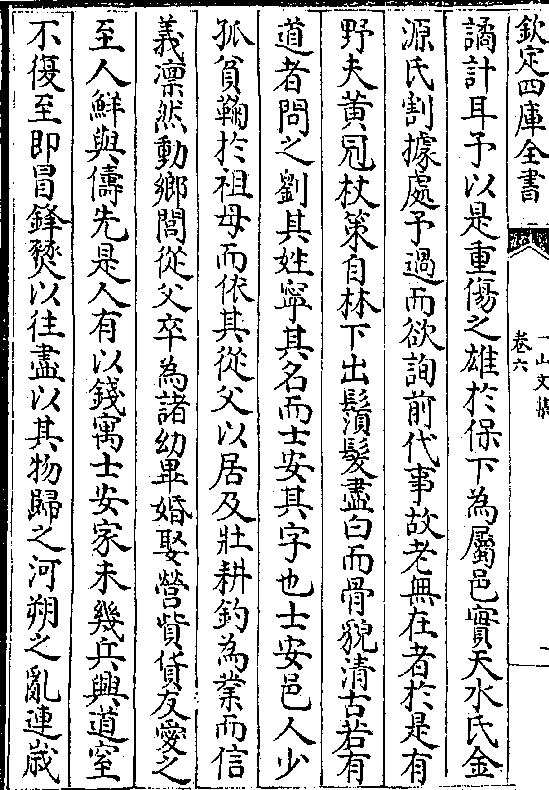 欽定四庫全書
一山文集
卷六
譎計耳予以是重傷之雄於保下為屬邑實天水氏金
源氏割據處予過而欲詢前代事故老無在者於是有
野夫黃冠杖策自林下出鬚髮盡白而骨貌清古若有
道者問之劉其姓寧其名而士安其字也士安邑人少
孤貧鞠於祖母而依其從父以居及壯耕釣為業而信
義凛然動鄉閭從父卒為諸幼畢婚娶營貲貨友愛之
至人鮮與儔先是人有以錢寓士安家未幾兵興道窒
不復至即冒鋒燹以往盡以其物歸之河朔之亂連歲